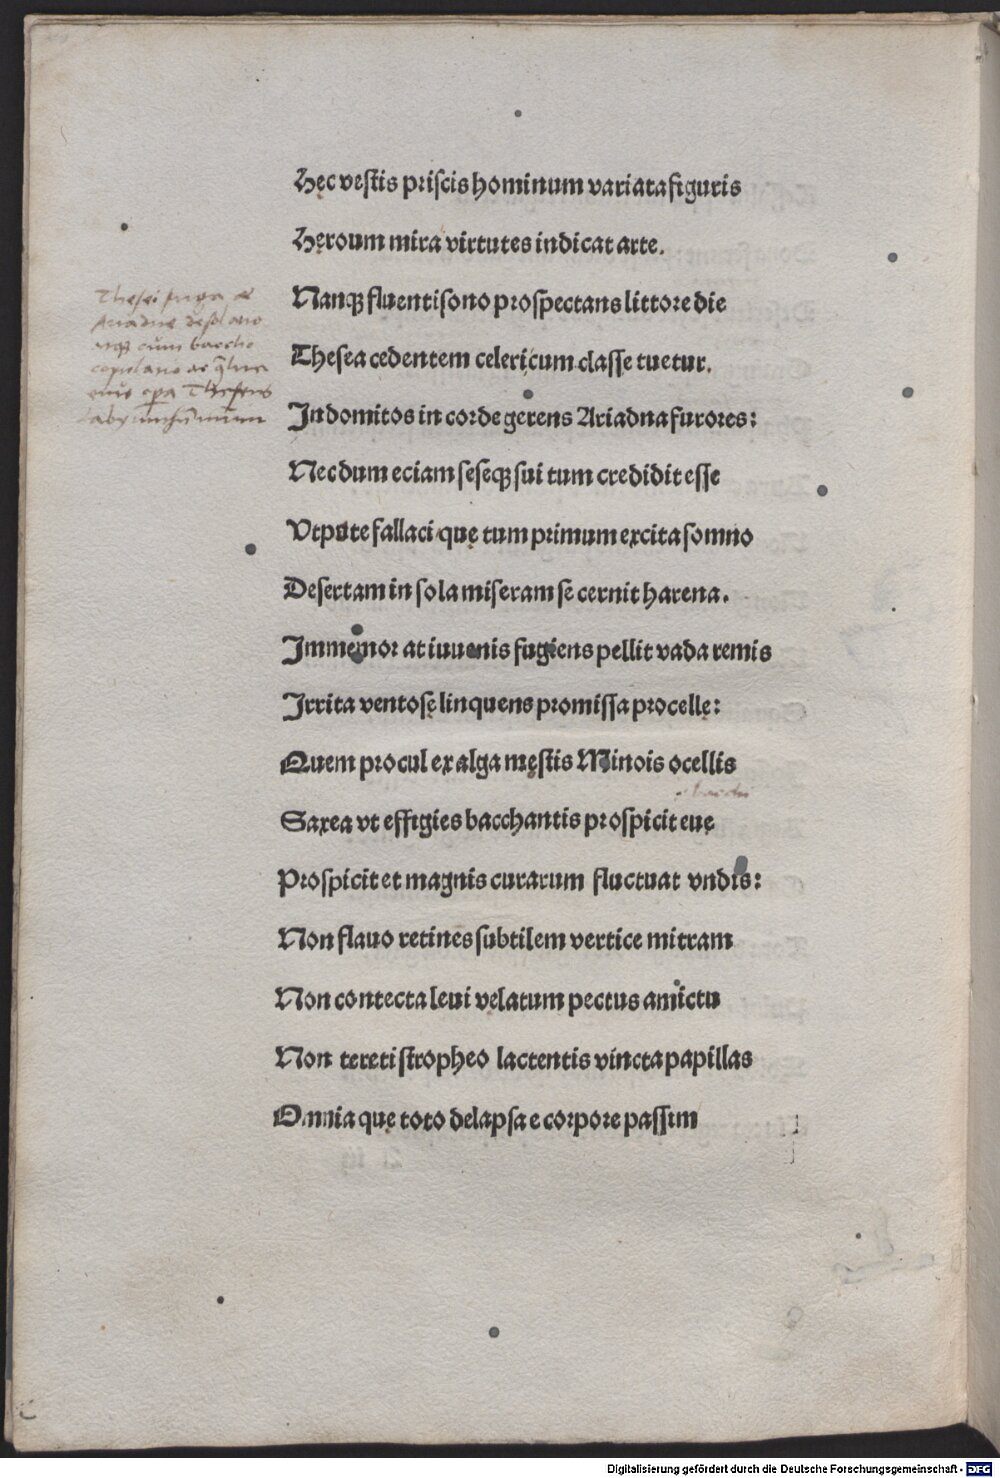 Hęc vestis priscis hominum variata figuris
Hęroum mira virtutes indicat arte.
Nanqꝫ fluentisono prospectans littore die
Thesea cedentem celeri cum classe tuetur.
Indomitos in corde gerens Ariadna furores:
Necdum eciam seseqꝫ sui tum credidit esse
Vtpute fallaci que tum primum excita somno
Desertam in sola miseram se cernit harena.
Immemor at iuuenis fugiens pellit vada remis
Irrita ventosę linquens promissa procelle:
Quem procul ex alga męstis Minois ocellis
Saxea vt effigies bacchantis prospicit euę
Prospicit et magnis curarum fluctuat vndis:
Non flauo retines subtilem vertice mitram
Non contecta leui velatum pectus amictu
Non tereti stropheo lactentis vincta papillas
Omnia quę toto delapsa e corpore passim
Thesei fuga
cum baccho
Theseus
Digitalisierung gefördert durch die Deutsche Forschungsgemeinschaft - DFG